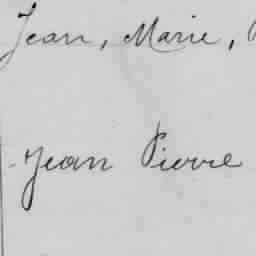 Jean, Marie,
Jean Pierre